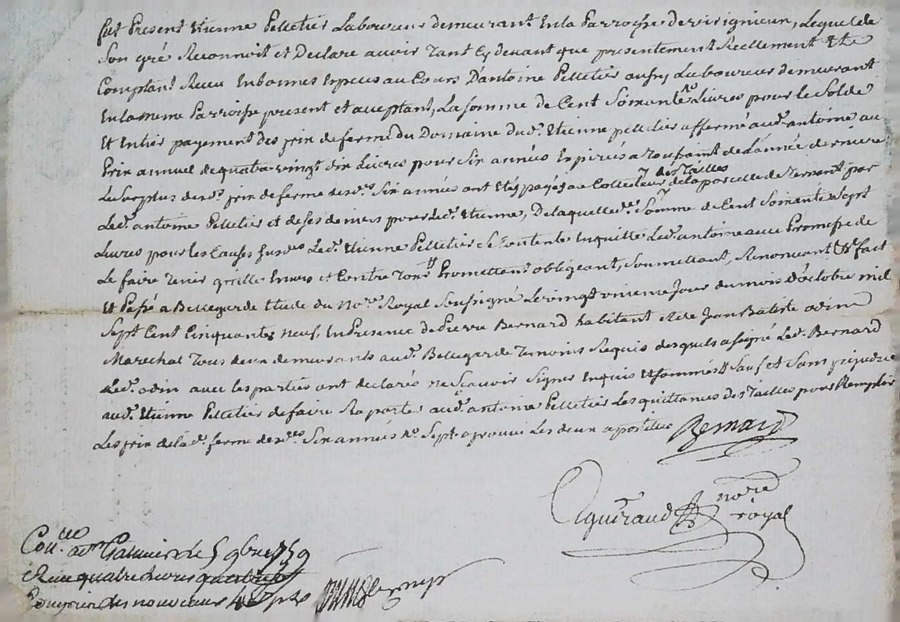 fut Present Etienne Pelletier Laboureur demeurant En la Parroisse de virignieux, Lequel de
Son gré Reconnoit et Declare avoir Tant Cy devant que presentement Reellement Et
Comptant Receu En bonnes Especes au Cours D'antoine Pelletier aussy Laboureur demeurant
En la meme Parroisse present et acceptant, La somme de Cent Soixante Livres pour le Solde
Et Entier payement des prix de ferme du Domaine dud. Etienne pelletier affermé aud. antoine au
Prix annuel de quatre vingt dix Livres pour Six années Expirées a Toussaint de L'année derniere
Le Surplus desd. prix de ferme desd. Six années ont Eté payés au Collecteur des Tailles de la parcelle de par
Led. antoine Pelletier et de ses deniers pour led. Etienne, De laquelle d. Somme de Cent Soixante Sept
Livres pour les Causes susd. Led. Etienne Pelletier Se Contente En quitte Led. antoine avec Promesse de
Le faire Tenir quitte Envers et Contre Tous Promettant obligeant, Soumettant, Renonceant &c fait
Et Passé a Bellegarde Etude du No.re Royal Soussigné Le vingt uniemme Jour du mois D'octobre mil
Sept Cent Cinquante neuf, En Presence de Pierre Bernard habitant et de Jean Batiste odin
Marechal Tous deux demeurants aud. Bellegarde Temoins Requis desquels a signé Led. Bernard
Led. odin avec les parties ont declarés ne Scavoir Signer Enquis Et Sommés Sauf et Sans prejudice
aud. Etienne Pelletier de faire Raporter aud. antoine Pelletier Les quittances des Tailles pour Remplir
Les prix de lad. ferme desd. Six années Sept aprouvé Les deux apostilles Bernard
no.re
royal
Con.llé a le 5 9bre 1759
Reçu quatre livres
nouveaux